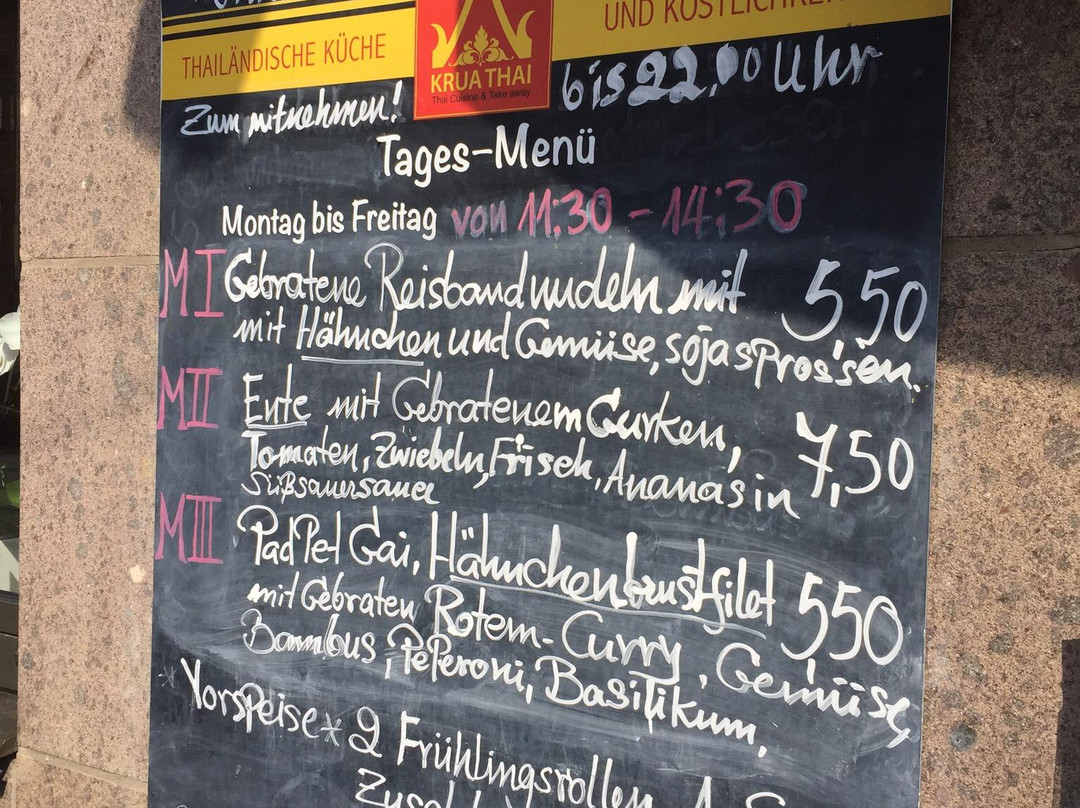 THAILÄNDISCHE KÜCHE
UND KÖSTLICHKEI
KRUA THAI
Thai Cuisine & Take away
Zum mitnehmen!
bis 22,00 Uhr
Tages-Menü
Montag bis Freitag von 11:30 - 14:30
M I Gebratene Reisbandnudeln mit 5,50
mit Hähnchen und Gemüise, sojasprossen.
M II Ente mit Gebratenem Gurken, 7,50
Tomaten, Zwiebeln, Frisch, Ananas in
süßsauersauer
M III Pad Pet Gai, Hähnchenbrustfilet 5,50
mit Gebraten Rotem-Curry, Gemüise,
Bambus, PePeroni, Basilikum,
*Vorspeise* 2 Frühlingsrollen